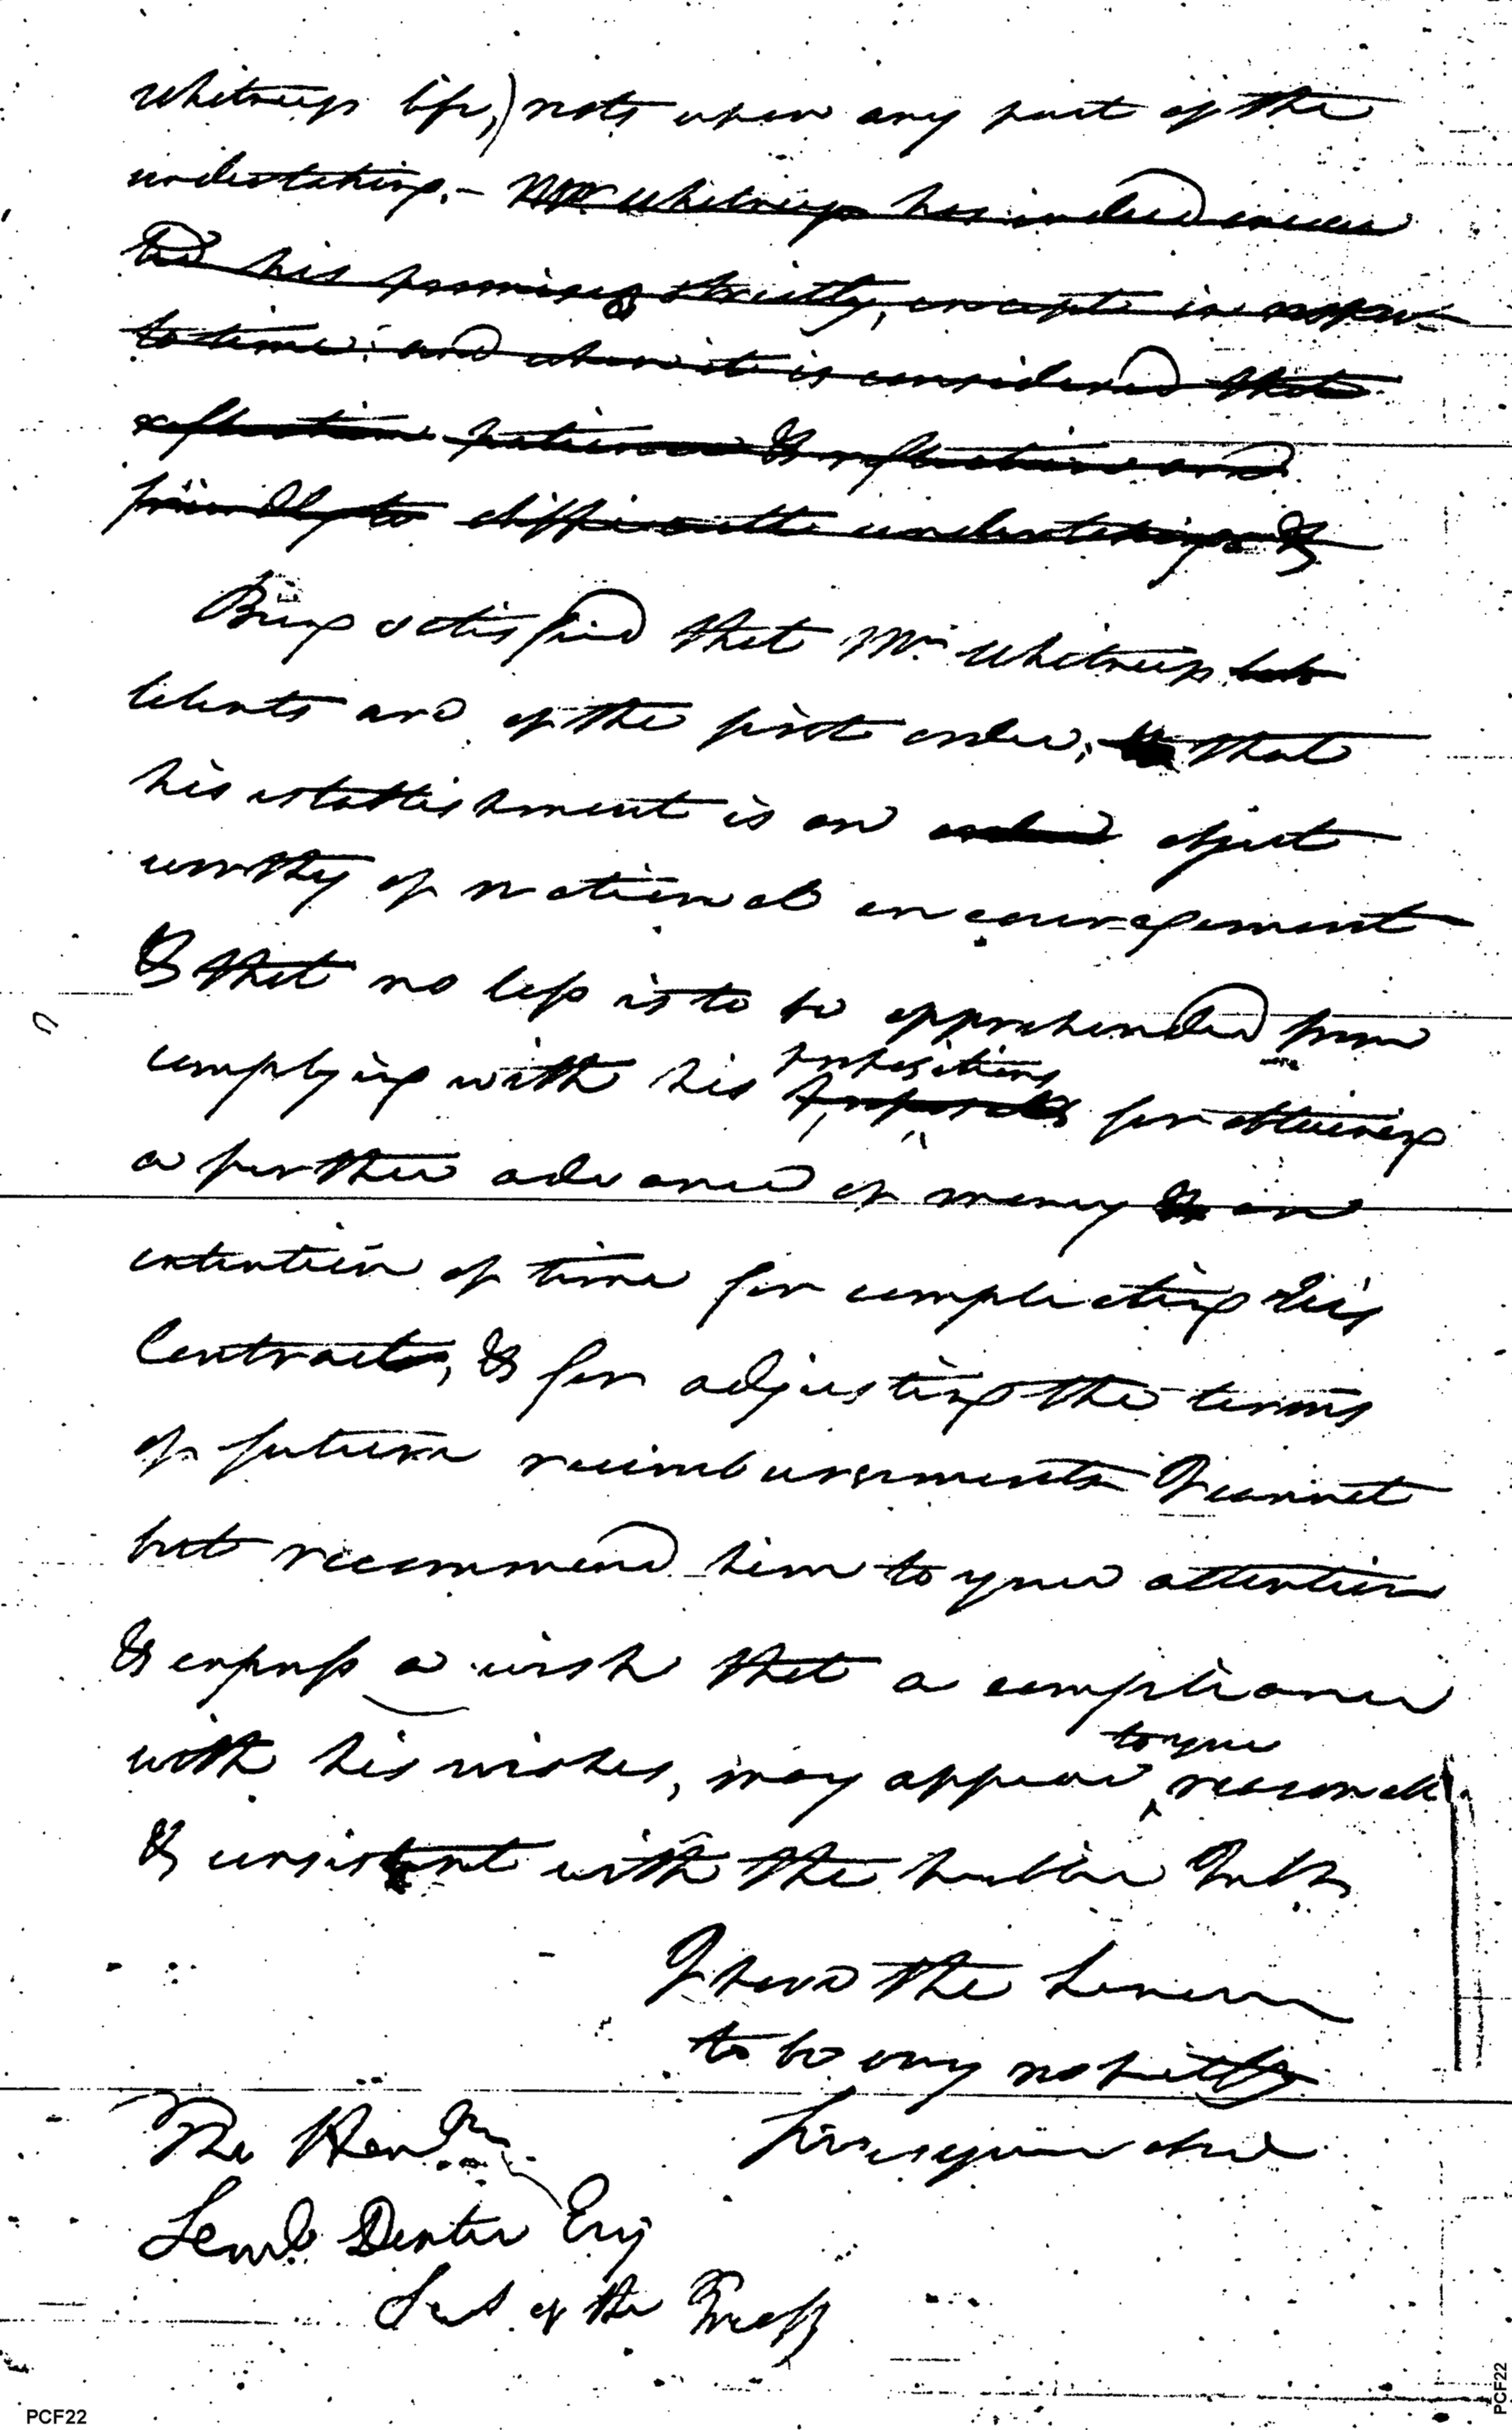 Whitneys life,) rests upon any part of the
undertaking.– Mr Whitney has indeed execu
ted his promises strictly, except in respect
to time: and when it is considered that
reflection patience & reflection are
friendly to difficult undertakings &
Being satisfied that Mr. Whitneys
talents are of the first order, that
his establishment is an object
worthy of national encouragement
& that no loss is to be apprehended from
propositions
complying with his proposals for obtaining
a further advance of money & an
extention of time for compleating his
Contract, & for adjusting the terms
of future reimbursements I cannot
but recommend him to your attention
& express a wish that a compliance
to you
with his wishes, may appear reasonable
& consistent with the public Intts
I have the honour
to be very respectfly
Sir your obed
The Honble
Saml. Dexter Esq
Sect of the Treasy
PCF22
PCF22